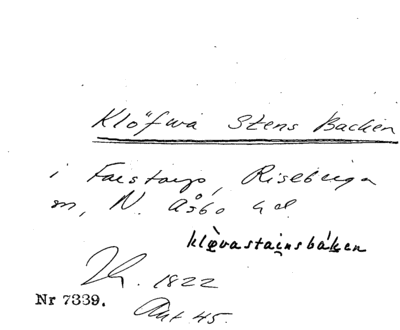 Klöfwa Stens Backen
i Farstorp, Riseberga
sn, N. Åsbo hd
klövastainsbáken
1822
Nr 7339.
Akt 45.